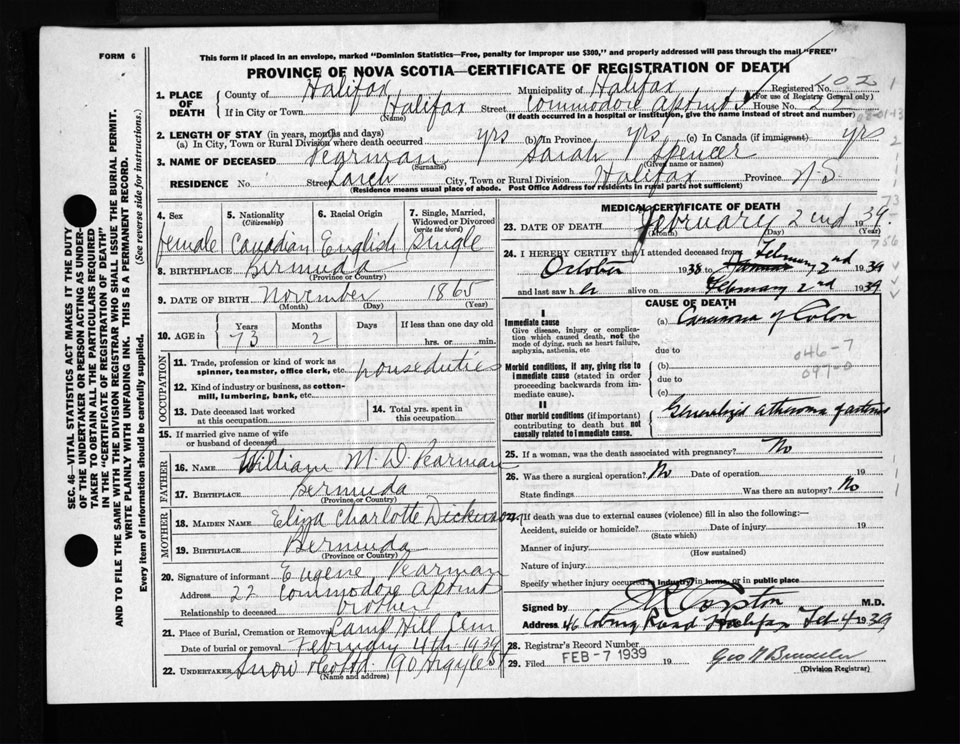 FORM 6
This form if placed in an envelope, marked "Dominion Statistics—Free, penalty for improper use $300," and properly addressed will pass through the mail "FREE"
PROVINCE OF NOVA SCOTIA—CERTIFICATE OF REGISTRATION OF DEATH
1. PLACE OF DEATH
County of Halifax Municipality of Halifax Registered No. 202
(For use of Registrar General only)
If in City or Town Halifax Street Commodore Aptmts House No. 22
(Name) (If death occurred in a hospital or institution, give the name instead of street and number)
2. LENGTH OF STAY (in years, months and days)
(a) In City, Town or Rural Division where death occurred yrs (b) in Province yrs (c) In Canada (if immigrant) yrs
3. NAME OF DECEASED Pearman Sarah Spencer
(Surname) (Given name or names)
RESIDENCE No. Street Larch City, Town or Rural Division Halifax Province N.S.
(Residence means usual place of abode. Post Office Address for residents in rural parts not sufficient)
SEC. 46—VITAL STATISTICS ACT MAKES IT THE DUTY
OF THE UNDERTAKER OR PERSON ACTING AS UNDER-
TAKER TO OBTAIN ALL THE PARTICULARS REQUIRED
IN THE "CERTIFICATE OF REGISTRATION OF DEATH"
AND TO FILE THE SAME WITH THE DIVISION REGISTRAR WHO SHALL ISSUE THE BURIAL PERMIT.
WRITE PLAINLY WITH UNFADING INK. THIS IS A PERMANENT RECORD.
Every item of information should be carefully supplied. (See reverse side for instructions.)
4. Sex 5. Nationality (Citizenship) 6. Racial Origin 7. Single, Married, Widowed or Divorced (write the word)
female Canadian English Single
8. BIRTHPLACE Bermuda
(Province or Country)
9. DATE OF BIRTH November 1865
(Month) (Day) (Year)
10. AGE in Years Months Days If less than one day old
73 2 hrs. or min.
OCCUPATION
11. Trade, profession or kind of work as
spinner, teamster, office clerk, etc. houseduties
12. Kind of industry or business, as cotton-
mill, lumbering, bank, etc.
13. Date deceased last worked
at this occupation
14. Total yrs. spent in
this occupation
15. If married give name of wife
or husband of deceased
FATHER
16. NAME William M. D. Pearman
17. BIRTHPLACE Bermuda
(Province or Country)
MOTHER
18. MAIDEN NAME Eliza Charlotte Dickinson
19. BIRTHPLACE Bermuda
(Province or Country)
20. Signature of informant Eugene Pearman
Address 22 Commodore Aptmt
Relationship to deceased brother
21. Place of Burial, Cremation or Removal Camp Hill Cem
Date of burial or removal February 4th 1939
22. UNDERTAKER Snow & Co Ltd 190 Argyle St
(Name and address)
MEDICAL CERTIFICATE OF DEATH
23. DATE OF DEATH February 2nd 1939
(Month) (Day) (Year)
24. I HEREBY CERTIFY that I attended deceased from
October 1938 to February 2nd 1939
and last saw her alive on February 2nd 1939
CAUSE OF DEATH
I
Immediate cause
Give disease, injury or complica-
tion which caused death, not the
mode of dying, such as heart failure,
asphyxia, asthenia, etc
(a) Carcinoma of Colon
due to
046-7
Morbid conditions, if any, giving rise to
immediate cause (stated in order
proceeding backwards from im-
mediate cause).
(b)
097-0
due to
(c)
II
Other morbid conditions (if important)
contributing to death but not
causally related to immediate cause.
Generalized atheroma of arteries
25. If a woman, was the death associated with pregnancy? No
26. Was there a surgical operation? No Date of operation 19
State findings Was there an autopsy? No
27. If death was due to external causes (violence) fill in also the following:—
Accident, suicide or homicide? Date of injury 19
(State which)
Manner of injury
(How sustained)
Nature of injury
Specify whether injury occurred in industry, in home, or in public place
Signed by M.D.
Address 46 Coburg Road Halifax Feb 4 1939
28. Registrar's Record Number
29. Filed FEB -7 1939 19
(Division Registrar)